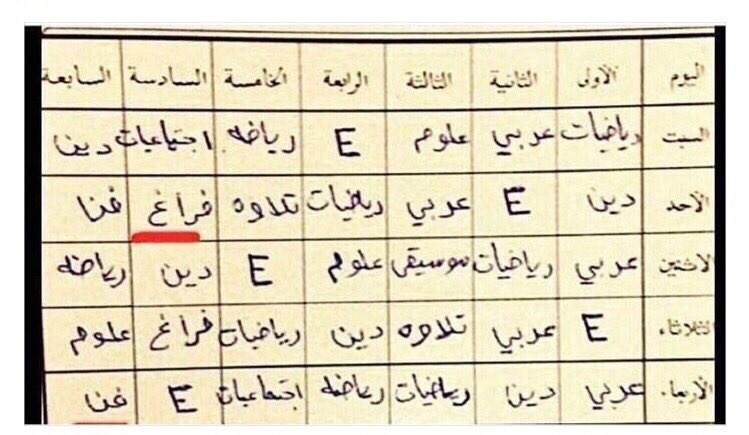 اليوم الأولى الثانية الثالثة الرابعة الخامسة السادسة السابعة
السبت رياضيات عربي علوم E رياضه اجتماعيات دين
الأحد دين E عربي رياضيات تلاوه فرأغ فنا
الاثنين عربي رياضيات موسيقى علوم E دين رياضه
الثلاثاء E عربي تلاوه دين رياضيات فرأغ علوم
الأربعاء عربي دين رياضيات رياضه اجتماعيات E فن